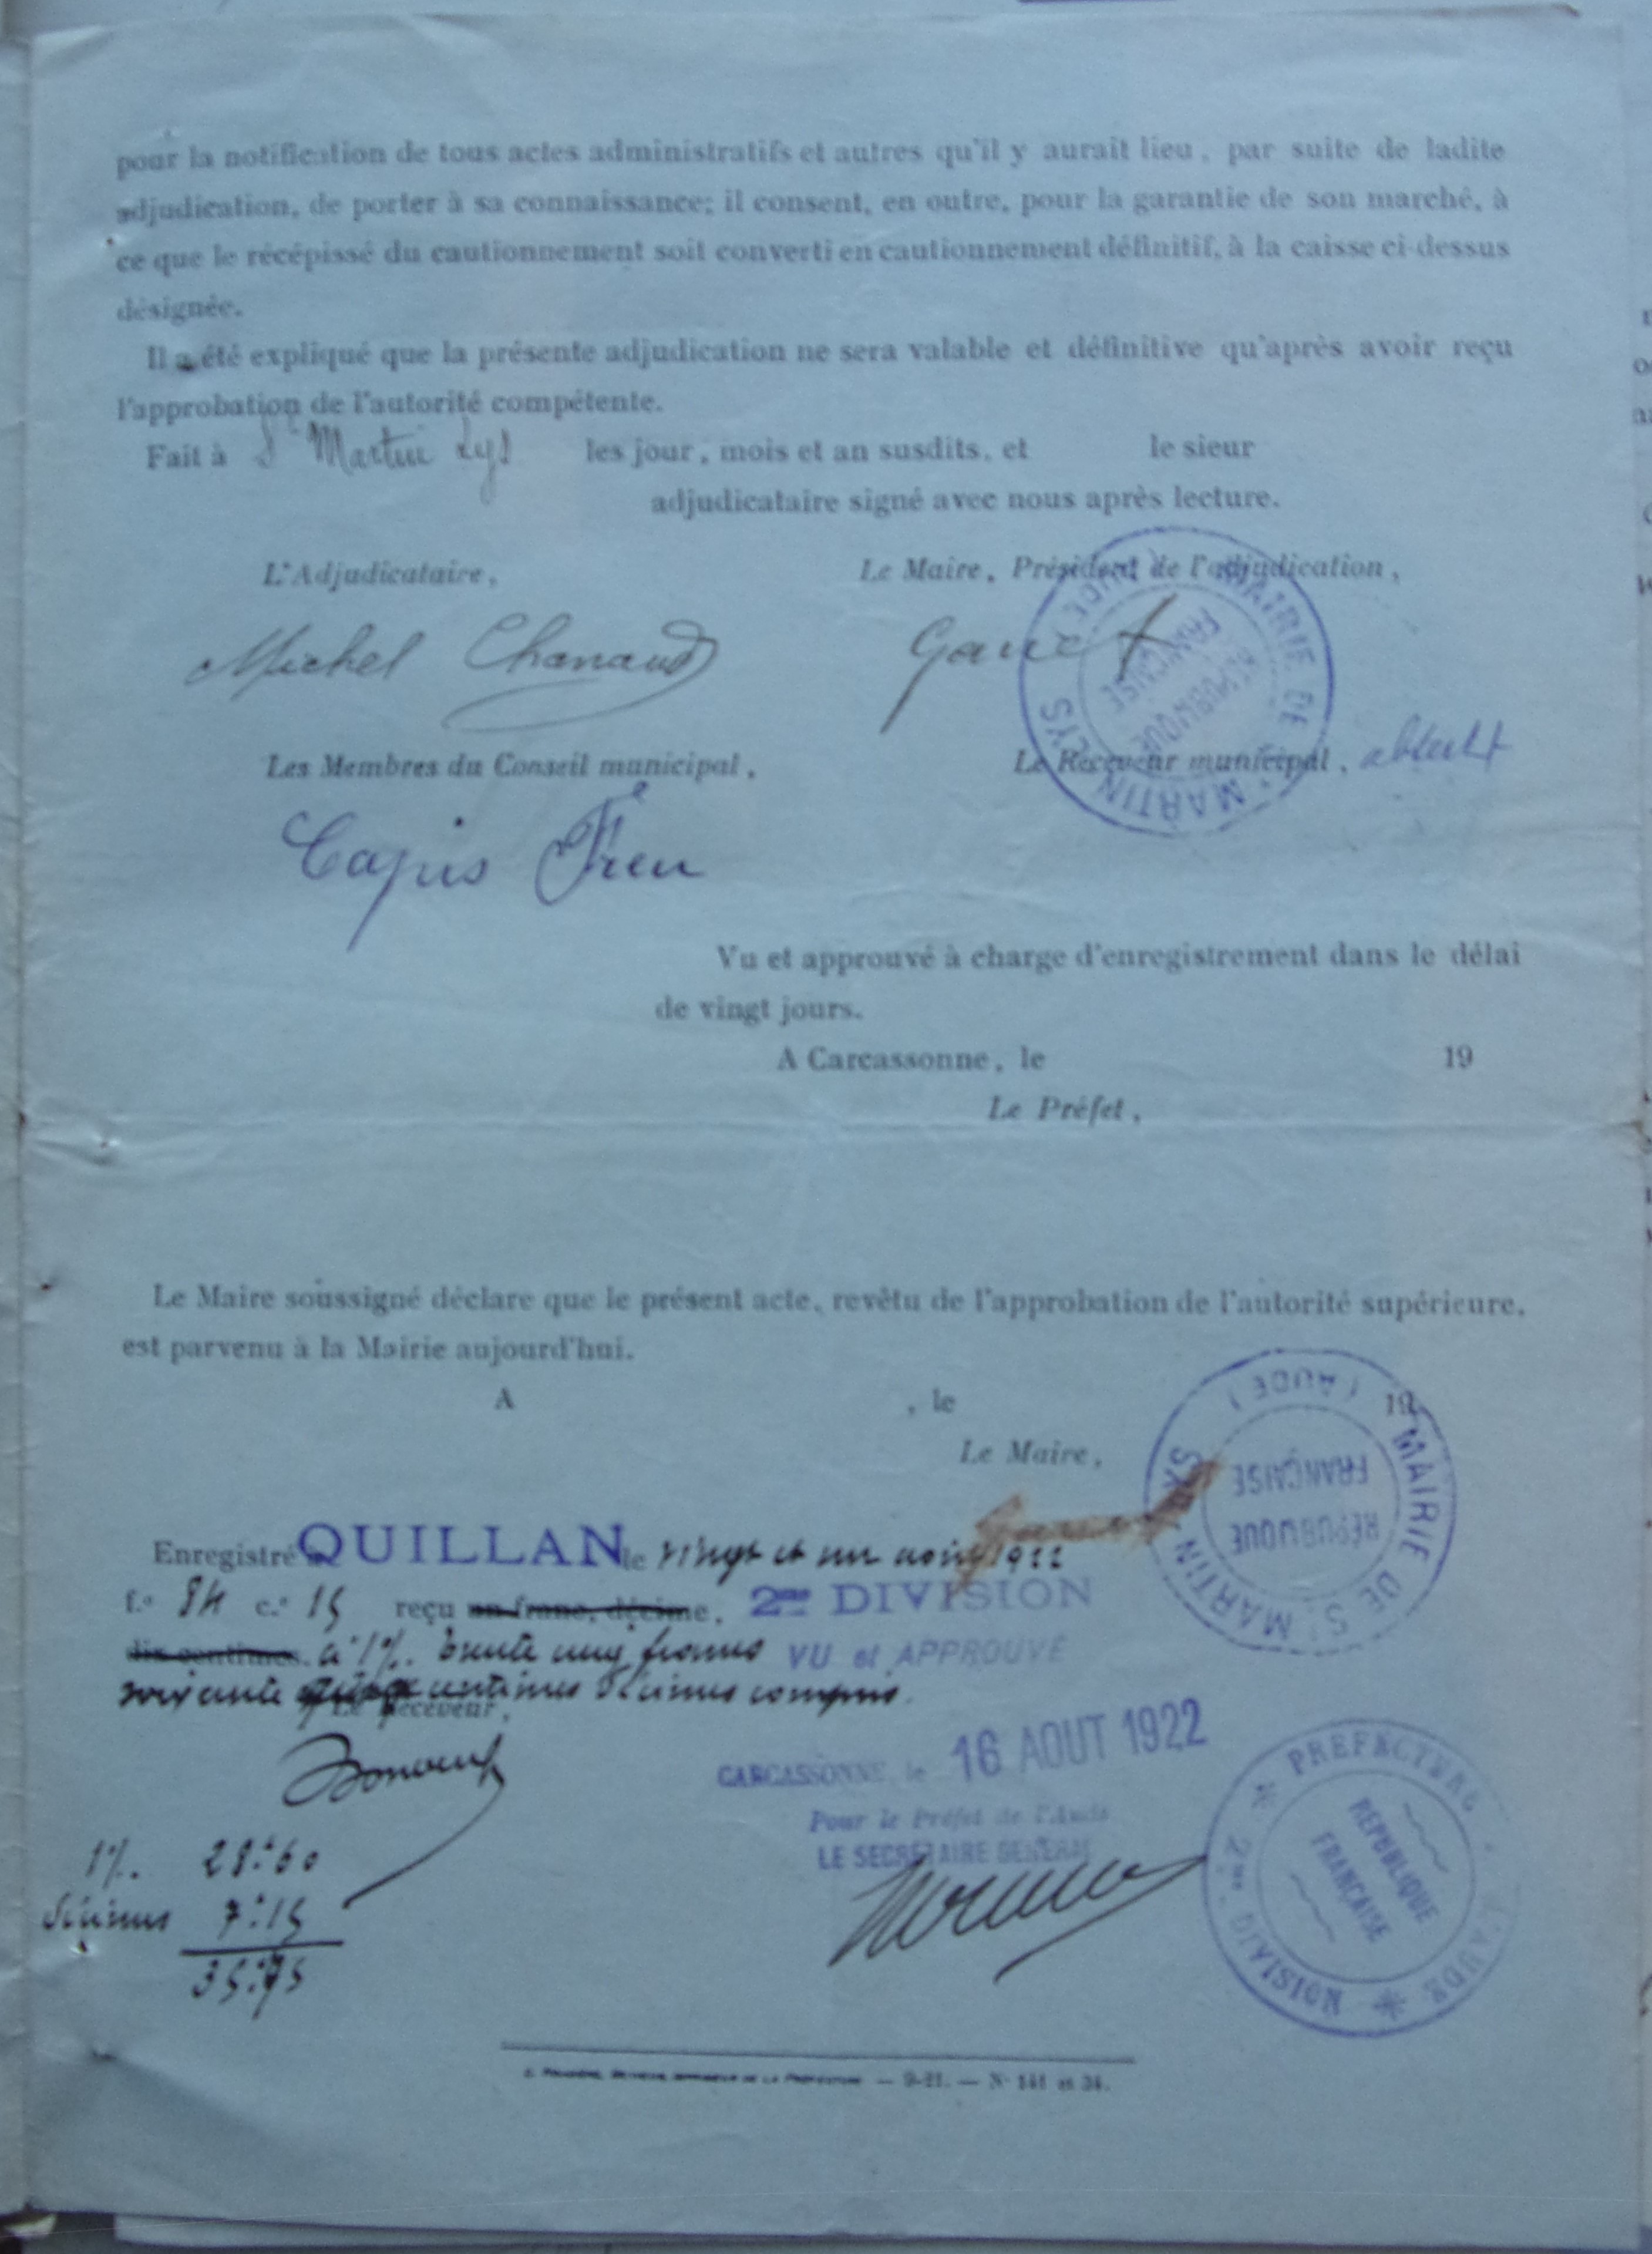 pour la notification de tous actes administratifs et autres qu'il y aurait lieu, par suite de ladite
adjudication, de porter à sa connaissance; il consent, en outre, pour la garantie de son marché, à
ce que le récépissé du cautionnement soit converti en cautionnement définitif, à la caisse ci-dessus
désignée.
Il a été expliqué que la présente adjudication ne sera valable et définitive qu'après avoir reçu
l'approbation de l'autorité compétente.
Fait à St Martin Lys les jour, mois et an susdits, et le sieur
adjudicataire signé avec nous après lecture.
L'Adjudicataire, Le Maire, Président de l'adjudication,
Michel
MAIRIE DE St MARTIN LYS (AUDE)
RÉPUBLIQUE
FRANÇAISE
Les Membres du Conseil municipal, Le Receveur municipal, absent
Vu et approuvé à charge d'enregistrement dans le délai
de vingt jours.
A Carcassonne, le 19
Le Préfet,
Le Maire soussigné déclare que le présent acte, revêtu de l'approbation de l'autorité supérieure,
est parvenu à la Mairie aujourd'hui.
A , le 19
Le Maire,
MAIRIE DE St MARTIN LYS (AUDE)
RÉPUBLIQUE
FRANÇAISE
Enregistré à QUILLAN le vingt et un août 1922
f.o 84 c.e 15 reçu un franc, décime, 2me DIVISION
dix centimes. à 1%. trente cinq francs VU et APPROUVÉ
soixante quinze centimes décimes compris.
Le Receveur,
CARCASSONNE, le 16 AOUT 1922
Pour le Préfet de l'Aude
LE SECRÉTAIRE GÉNÉRAL
PREFECTURE DE L'AUDE
2me DIVISION
RÉPUBLIQUE
FRANÇAISE
1%. 28.60
Décimes 7.15
35.75
IMPRIMEUR DE LA PRÉFECTURE — 9-21. — N° 141 et 34.